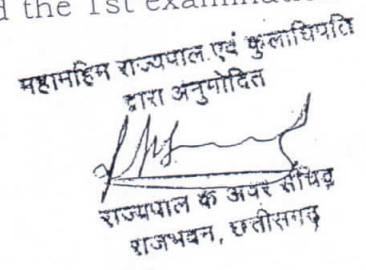 d the 1st examination
महामहिम राज्यपाल एवं कुलाधिपति
द्वारा अनुमोदित
राज्यपाल के अवर सचिव
राजभवन, छत्तीसगढ़